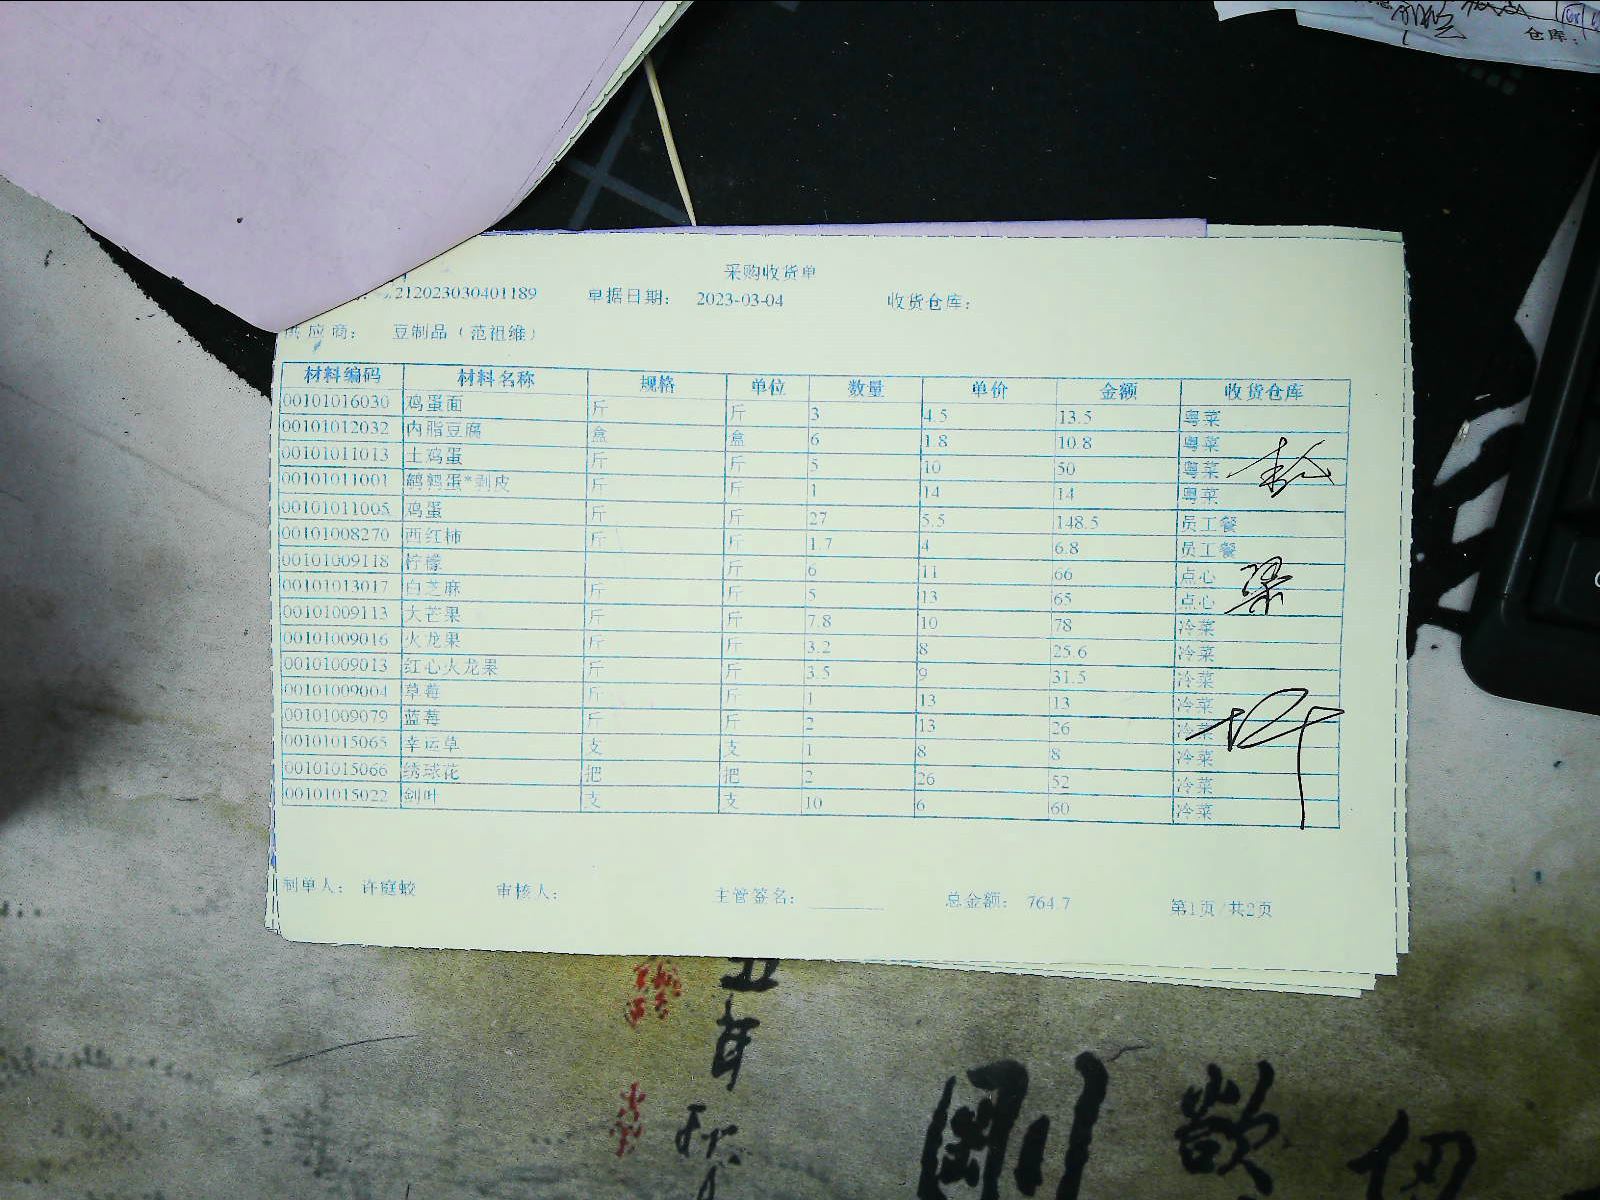 仓库:
采购收货单
212023030401189 单据日期: 2023-03-04 收货仓库:
供应商: 豆制品(范祖维)
材料编码 材料名称 规格 单位 数量 单价 金额 收货仓库
00101016030 鸡蛋面 斤 斤 3 4.5 13.5 粤菜
00101012032 内脂豆腐 盒 盒 6 1.8 10.8 粤菜
00101011013 土鸡蛋 斤 斤 5 10 50 粤菜
00101011001 鹌鹑蛋*剥皮 斤 斤 1 14 14 粤菜
00101011005 鸡蛋 斤 斤 27 5.5 148.5 员工餐
00101008270 西红柿 斤 斤 1.7 4 6.8 员工餐
00101009118 柠檬 斤 6 11 66 点心
00101013017 白芝麻 斤 斤 5 13 65 点心
00101009113 大芒果 斤 斤 7.8 10 78 冷菜
00101009016 火龙果 斤 斤 3.2 8 25.6 冷菜
00101009013 红心火龙果 斤 斤 3.5 9 31.5 冷菜
00101009004 草莓 斤 斤 1 13 13 冷菜
00101009079 蓝莓 斤 斤 2 13 26 冷菜
00101015065 幸运草 支 支 1 8 8 冷菜
00101015066 绣球花 把 把 2 26 52 冷菜
00101015022 剑叶 支 支 10 6 60 冷菜
梁
制单人: 许庭蛟 审核人: 主管签名: 总金额: 764.7 第1页/共2页
五年
剛
欲
切